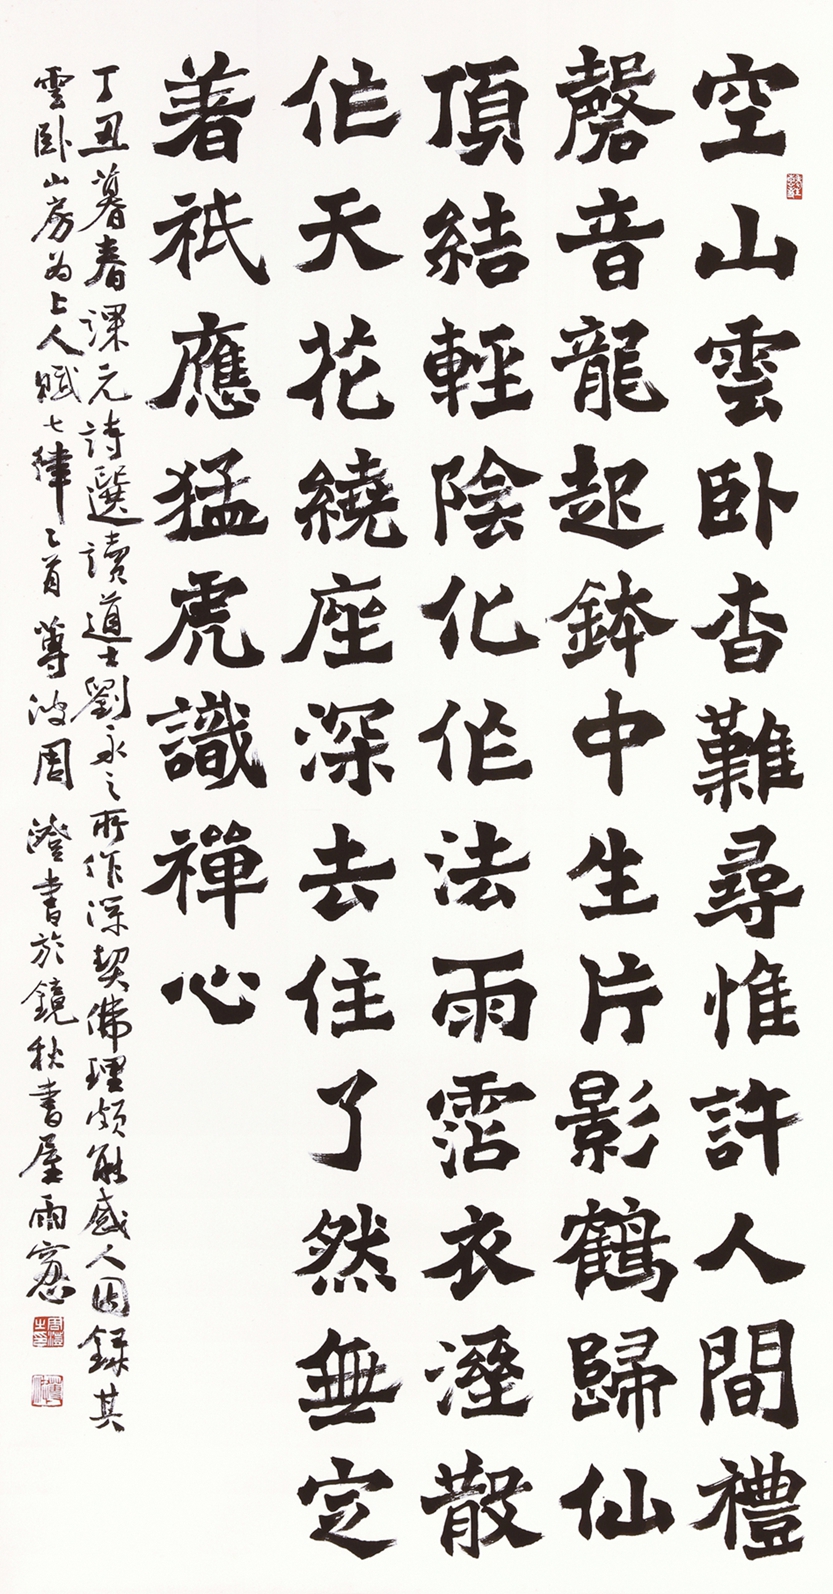 空山雲卧杳難尋惟許人間禮
磬音龍起鉢中生片影鶴歸仙
頂結輕陰化作法雨霑衣溼散
作天花繞座深去住了然無定
著祇應猛虎識禪心
丁丑暮春課元詩選讀道士劉永之所作深契佛理頗能感人因錄其
雲卧山房為上人賦七律乙首蓴波周澄書於鏡秋書屋雨窓
周澄之印